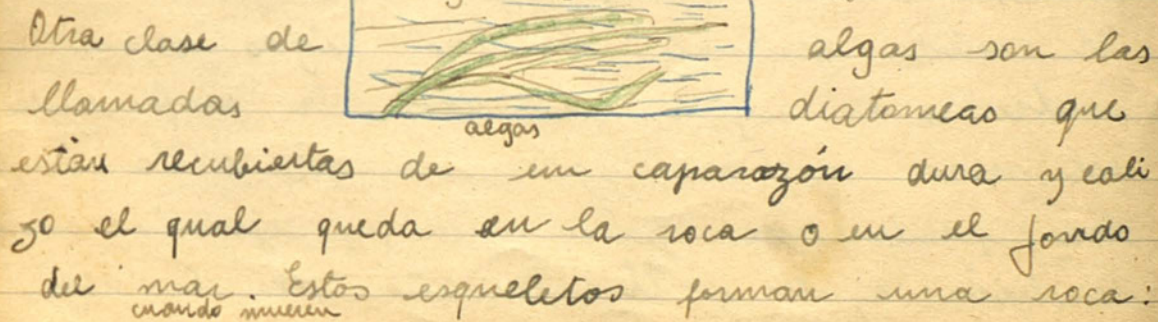 Otra clase de algas son las
llamadas diatomeas que
algas
están recubiertas de un caparazón dura y cali
zo el qual queda en la roca o en el fondo
del mar. Estos esqueletos forman una roca:
cuando mueren